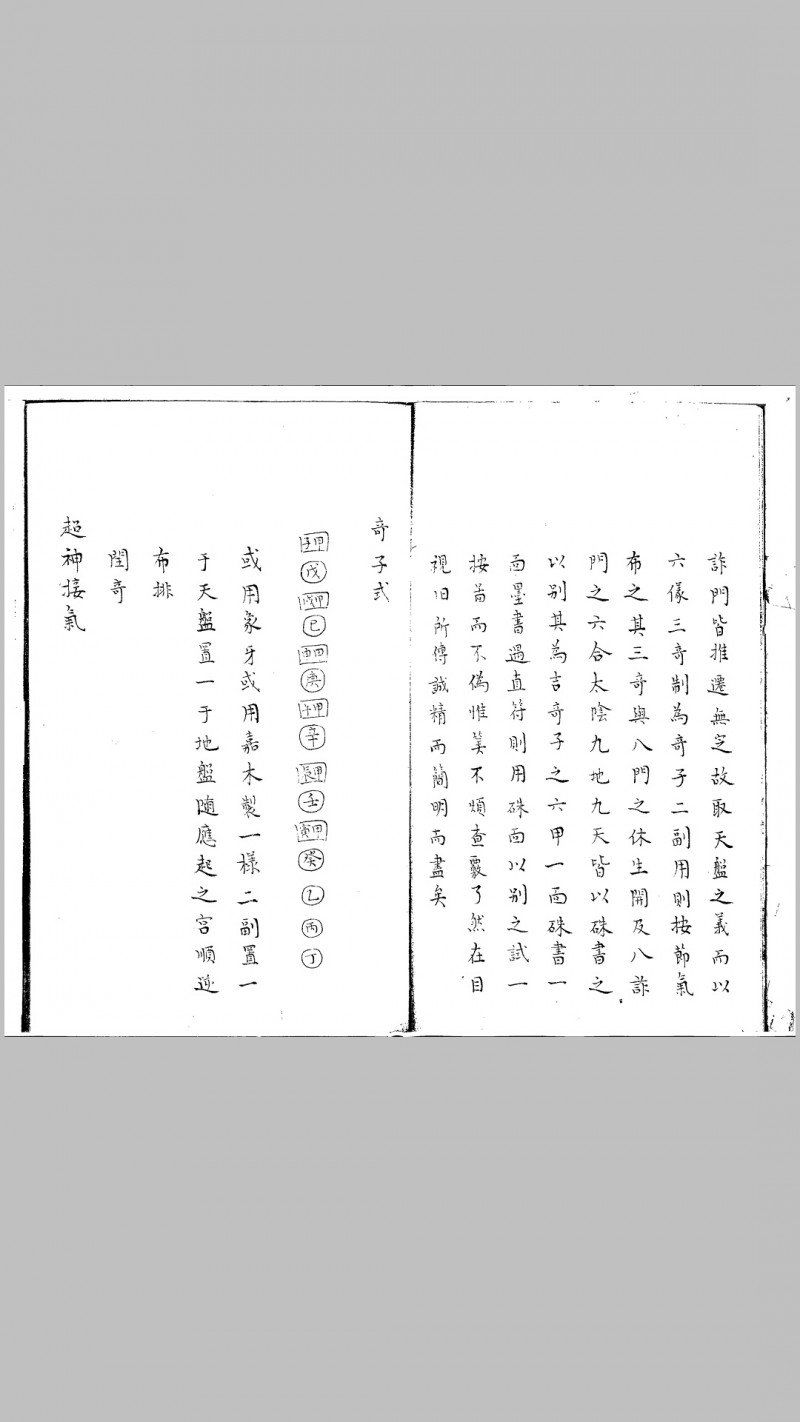 詐門皆推遷無定故取天盤之義而以
六儀三奇制為奇子二副用則按節氣
布之其三奇與八門之休生開及八詐
門之六合太陰九地九天皆以硃書之
以别其為吉奇子之六甲一面硃書一
面墨書過直符則用硃面以别之試一
按啚而不偽惟筭不煩查覈了然在目
視旧所傳誠精而簡明而盡矣
奇子式
甲子 戊 甲戌 己 甲申 庚 甲午 辛 甲辰 壬 甲寅 癸 乙 丙 丁
或用象牙或用嘉木製一樣二副置一
于天盤置一于地盤随應起之宫順逆
布排
閏奇
超神接氣